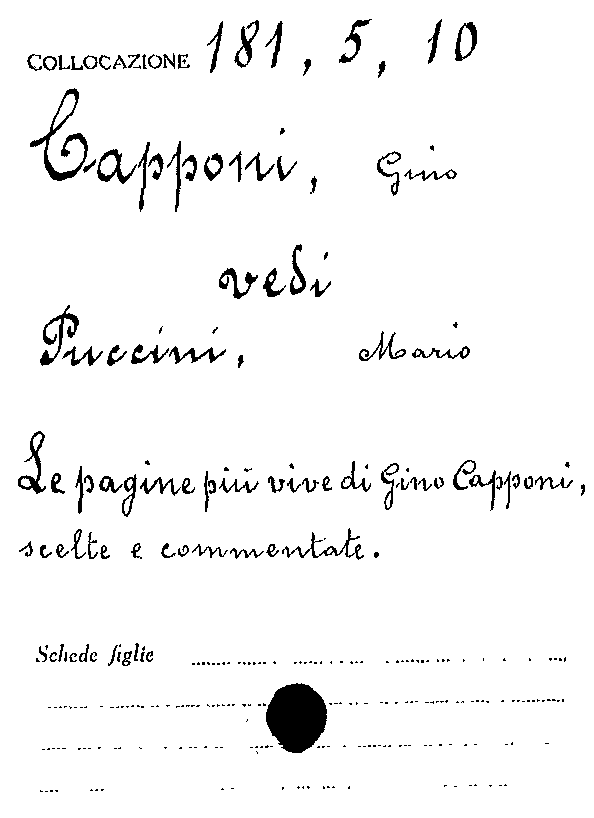 COLLOCAZIONE 181, 5, 10
Capponi, Gino
vedi
Puccini, Mario
Le pagine più vive di Gino Capponi,
scelte e commentate.
Schede figlie